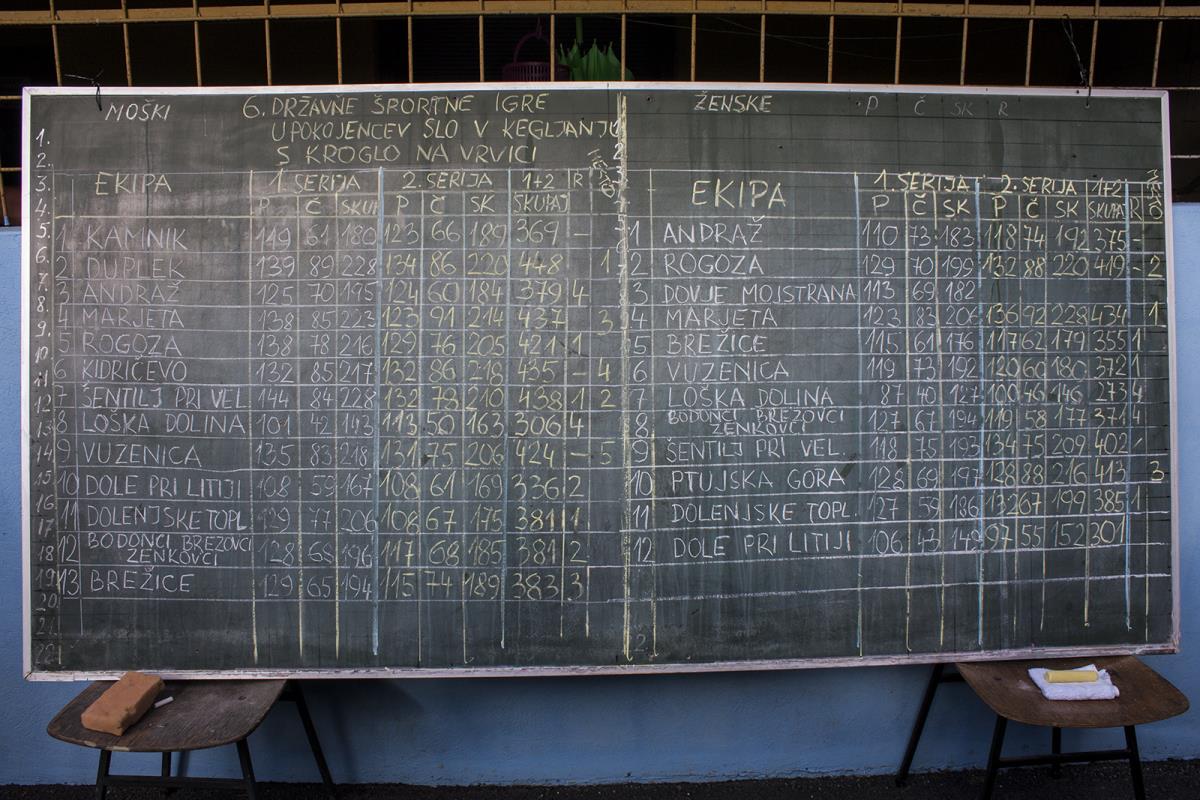 MOŠKI 6. DRŽAVNE ŠPORTNE IGRE
UPOKOJENCEV SLO V KEGLJANJU
S KROGLO NA VRVICI
EKIPA 1. SERIJA 2. SERIJA 1+2 R
P Č SKUP P Č SK SKUPAJ
1 KAMNIK 119 61 180 123 66 189 369 -
2 DUPLEK 139 89 228 134 86 220 448 1
3 ANDRAŽ 125 70 195 124 60 184 379 4
4 MARJETA 138 85 223 123 91 214 437 3
5 ROGOZA 138 78 216 129 76 205 421 1
6 KIDRIČEVO 132 85 217 132 86 218 435 - 4
7 ŠENTILJ PRI VEL. 144 84 228 132 78 210 438 1 2
8 LOŠKA DOLINA 101 42 143 113 50 163 306 4
9 VUZENICA 135 83 218 131 75 206 424 - 5
10 DOLE PRI LITIJI 108 59 167 108 61 169 336 2
11 DOLENJSKE TOPL. 129 77 206 108 67 175 381 1
12 BODONCI BREZOVCI
ŽENKOVCI 128 68 196 117 68 185 381 2
13 BREŽICE 129 65 194 115 74 189 383 3
ŽENSKE P Č SK R
EKIPA 1. SERIJA 2. SERIJA 1+2
P Č SK P Č SK SKUPAJ R
1 ANDRAŽ 110 73 183 118 74 192 375 -
2 ROGOZA 129 70 199 132 88 220 419 - 2
3 DOVJE MOJSTRANA 113 69 182
4 MARJETA 123 83 206 136 92 228 434 1
5 BREŽICE 115 61 176 117 62 179 355 1
6 VUZENICA 119 73 192 120 60 180 372 1
7 LOŠKA DOLINA 87 40 127 100 46 146 273 4
8 BODONCI BREZOVCI
ŽENKOVCI 127 67 194 119 58 177 371 4
9 ŠENTILJ PRI VEL. 118 75 193 134 75 209 402
10 PTUJSKA GORA 128 69 197 128 88 216 413 3
11 DOLENJSKE TOPL. 127 59 186 132 67 199 385 1
12 DOLE PRI LITIJI 106 43 149 97 55 152 301